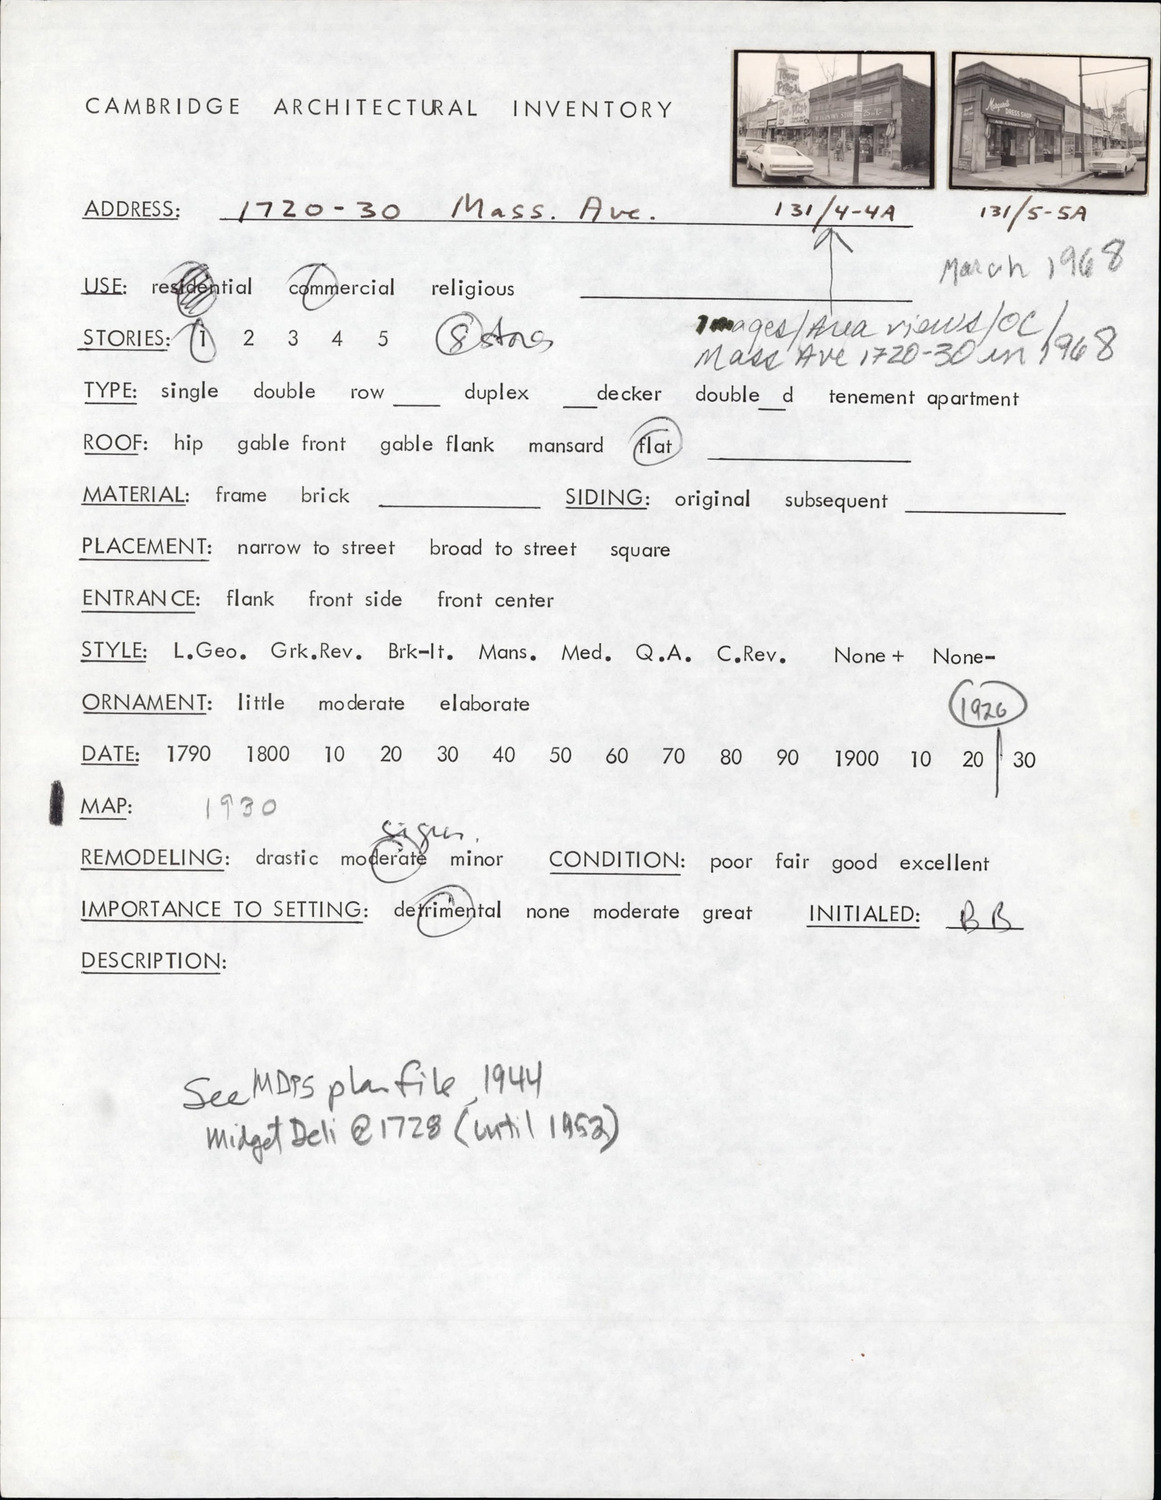 CAMBRIDGE ARCHITECTURAL INVENTORY
ADDRESS: 1720-30 Mass. Ave. 131/4-4A 131/5-5A
March 1968
USE: residential commercial religious
Images/Area views/OC/
Mass Ave 1720-30 in 1968
STORIES: 1 2 3 4 5 8 stores
TYPE: single double row ___ duplex ___decker double___d tenement apartment
ROOF: hip gable front gable flank mansard flat
MATERIAL: frame brick SIDING: original subsequent
PLACEMENT: narrow to street broad to street square
ENTRANCE: flank front side front center
STYLE: L.Geo. Grk.Rev. Brk-It. Mans. Med. Q.A. C.Rev. None+ None-
ORNAMENT: little moderate elaborate
1926
DATE: 1790 1800 10 20 30 40 50 60 70 80 90 1900 10 20 30
MAP: 1930
signs.
REMODELING: drastic moderate minor CONDITION: poor fair good excellent
IMPORTANCE TO SETTING: detrimental none moderate great INITIALED: BB
DESCRIPTION:
See MDPS plan file, 1944
Midget Deli @ 1728 (until 1952)